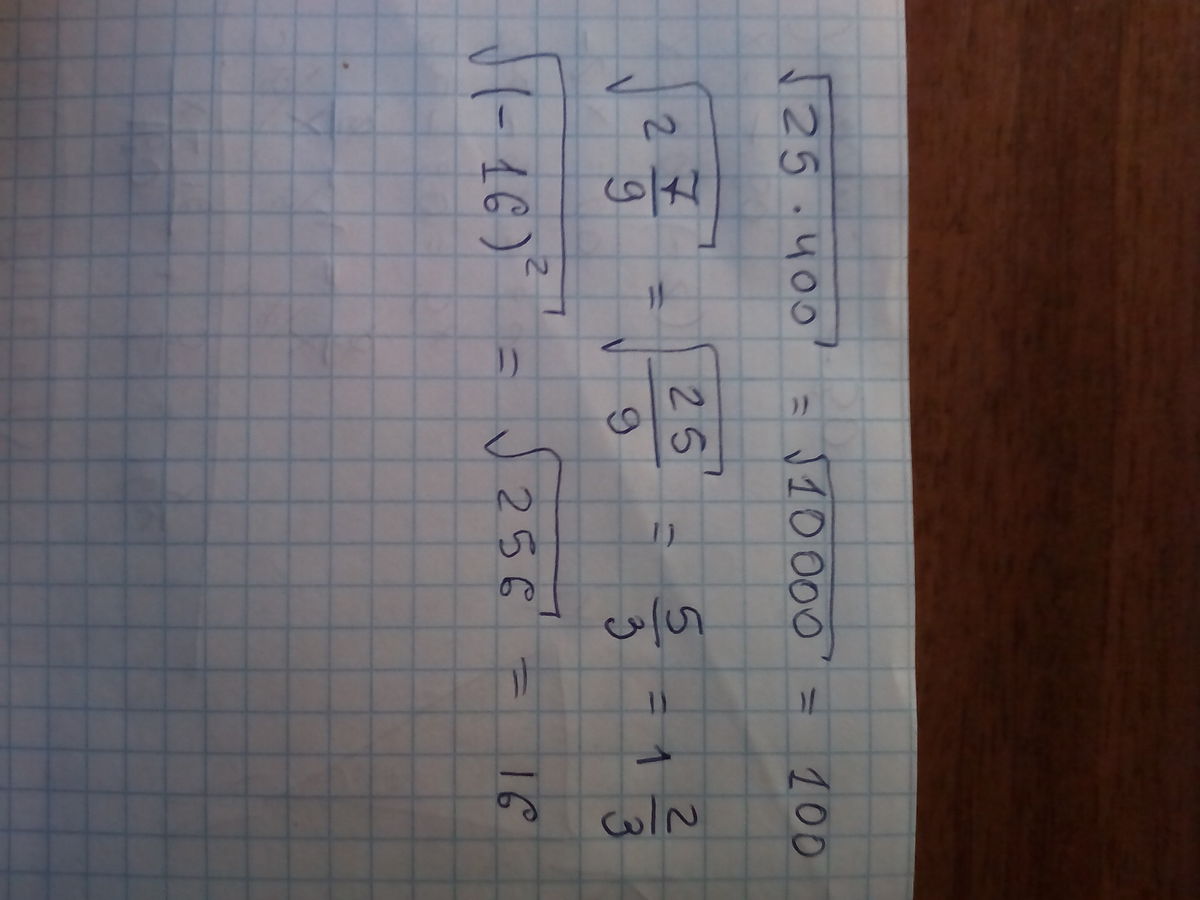 √25·400 = √10000 = 100
√2 7/9 = √25/9 = 5/3 = 1 2/3
√(-16)² = √256 = 16